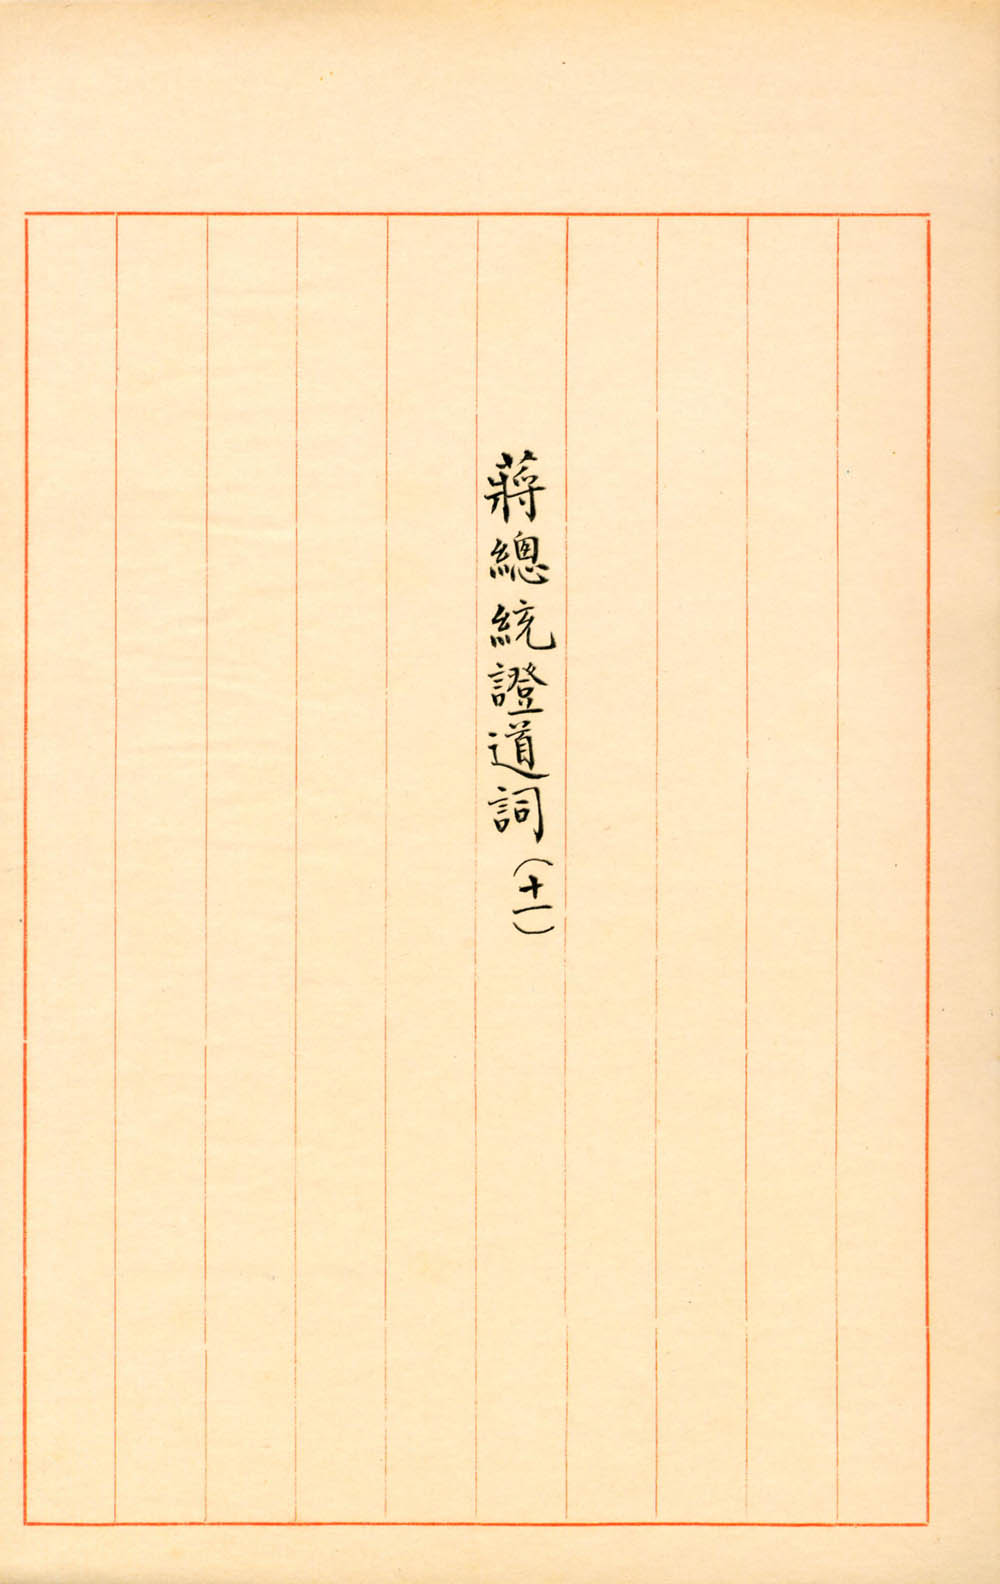 蔣總統證道詞(十一)